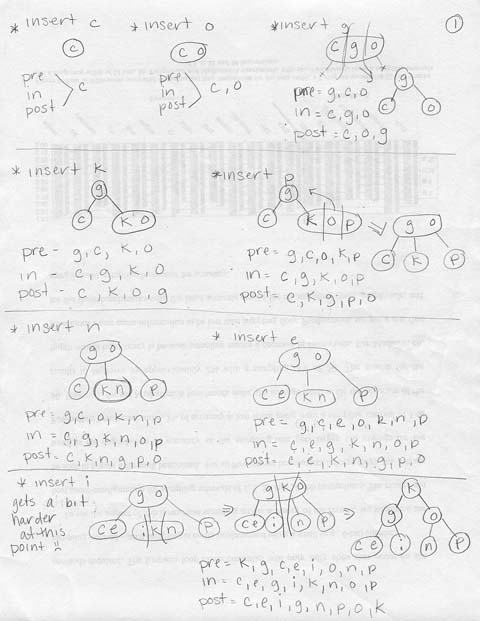 1
* insert c
c
pre
in
post
c
* insert o
c o
pre
in
post
c, o
* insert g
c g o
g
c o
pre = g, c, o
in = c, g, o
post = c, o, g
* insert k
g
c k o
pre - g, c, k, o
in - c, g, k, o
post - c, k, o, g
* insert p
g
c k o p
g o
c k p
pre = g, c, o, k, p
in = c, g, k, o, p
post = c, k, g, p, o
* insert n
g o
c k n p
pre = g, c, o, k, n, p
in = c, g, k, n, o, p
post = c, k, n, g, p, o
* insert e
g o
c e k n p
pre = g, c, e, o, k, n, p
in = c, e, g, k, n, o, p
post = c, e, k, n, g, p, o
* insert i
gets a bit
harder
at this
point
g o
c e i k n p
g k o
c e i n p
k
g o
c e i n p
pre = k, g, c, e, i, o, n, p
in = c, e, g, i, k, n, o, p
post = c, e, i, g, n, p, o, k